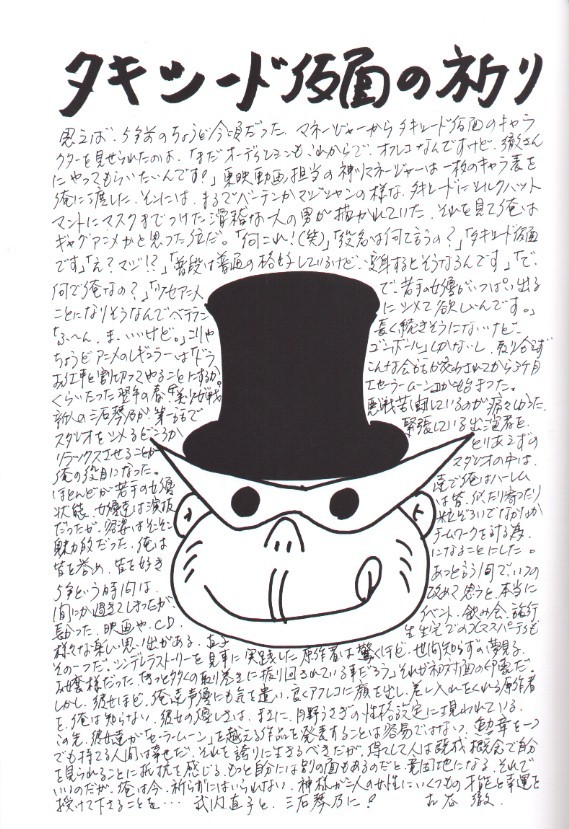 タキシード仮面の祈り
思えば、5年前のちょうど今頃だった。マネージャーからタキシード仮面のキャラ
クターを見せられたのは。「まだオーディションも、これからで、オフレコなんですけど、徹さん
にやってもらいたいんです。」東映動画担当の神リマネージャーは一枚のキャラ表を
俺に渡した。そこには、まるでペーテンかマジシャンの様な、タキシードにシルクハット
マントにマスクまでつけた滑稽な一人の男が描かれていた。それを見て俺は
ギャグアニメかと思った位だ。「何これ!(笑)」「役名は何て言うの?」「タキシード仮面
です」「え?マジ!?」「普段は普通の格好しているけど、変身するとそうなるんです」「で、
何で俺なの?」「リセアニメ で、若手の女優がいっぱい出る
ことになりそうなんでベテラン にシメて欲しいんです。」
「ふ〜ん、ま、いいけど。」こりゃ 長く続きそうにないけど、
ちょうどアニメのレギュラーは「ドラ ゴンボール」しかないし、取り合えず
ある工事と割り切ってやることにするか。 こんな会話が交わされてから3ヶ月
くらいたった翌年の春「美少女戦 士セーラームーン」が始まった。
新人の三石琴乃が第一話で 悪戦苦闘しているのが痛々しかった。
スタジオをシメるどころか、 緊張している出演者を、
リラックスさせることが とりあえずの
俺の役目になった。 スタジオの中は、
ほとんどが若手の女優 達で俺はハーレム
状態。女優達は演技 は皆、似たり寄ったり
だったが、容姿はそこそこ 粒ぞろいでなかなか
魅力的だった。俺は チームワークを計る為、
皆を誉め、皆を好き になることにした。
5年という時間は、 あっという間で、いつの
間にか過ぎてしまったが、 改めて思うと、本当に
長かった。映画や、CD、 イベント、飲み会、旅行
様々な楽しい思い出がある。直子 先生宅でのXマスパーティも
その一つだ。シンデレラストーリーを見事に実践した原作者は驚くほど、世間知らずの夢見る
お嬢様だった。きっと多くの取り巻きに振り回されている事だろう。それが初対面の印象だ。
しかし、彼女ほど、俺達声優にも気を遣い、良くアフレコに顔を出し、差し入れをくれる原作者
を、俺は知らない。彼女の優しさは、まさに、月野うさぎの性格設定には現われている。
この先、彼女達が「セーラームーン」を越える作品を発表することは容易ではない。勲章を一つ
でも持てる人間は幸せだ。それを誇りに生きるべきだが、得てして人は既成概念で自分
を見られることに抵抗を感じる。もっと自分には別の面もあるのだと意固地になる。それで
いいのだが、俺は今、祈らずにはいられない。神様が二人の女性にいくつもの才能と幸運を
授けて下さることを… 武内直子と、三石琴乃に! 古谷 徹。